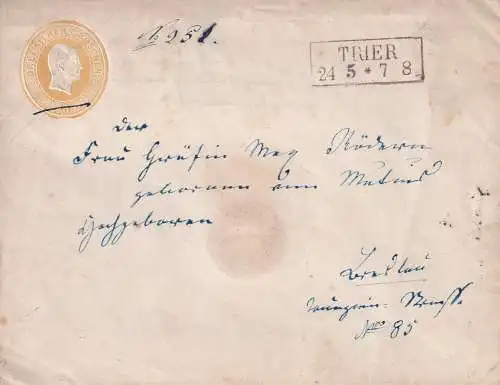 251.
TRIER
24 5 * 7 8
der
Frau Gräfin Rödern
geboren
Hochgeboren
Breslau
Strasse
No 85